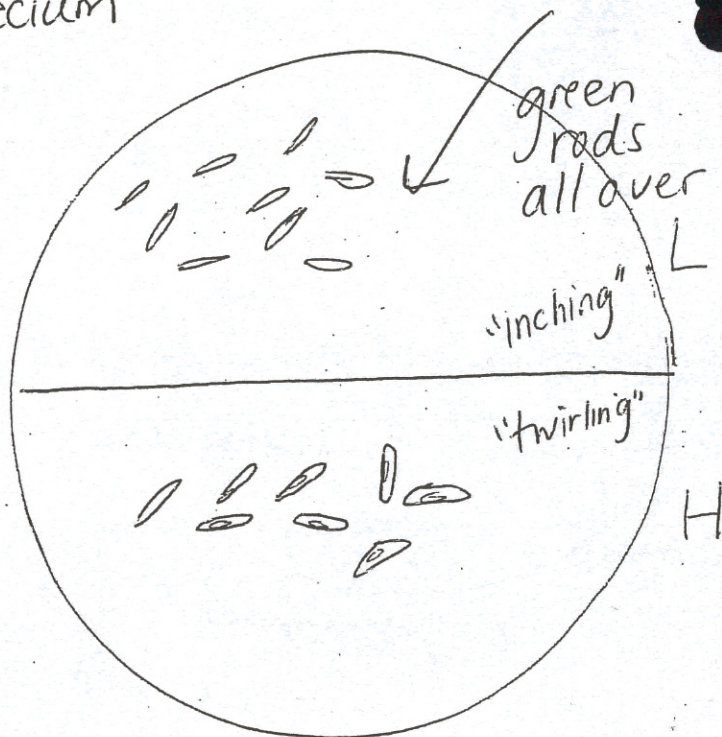 ecium
green
rods
all over
L
"inching"
"twirling"
H